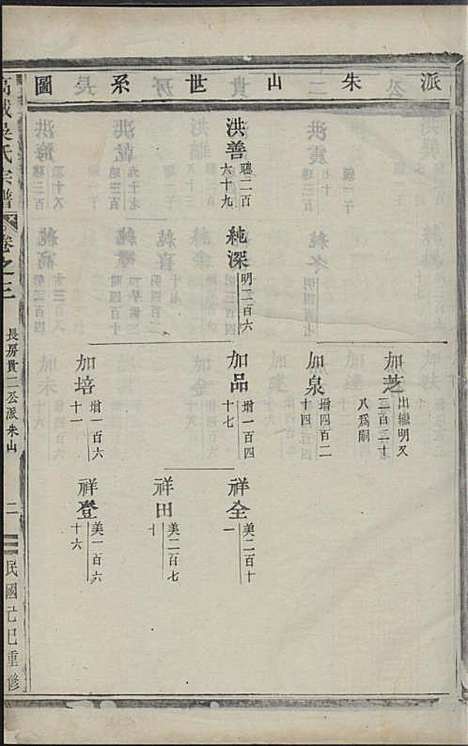 派朱山世系圖
洪善 璁二百六十九
純深 明二百六
加芝 出繼明又二百二十八爲嗣
加泉 增四百二十四
加品 增一百四十七
加培 增一百六十一
祥全 美二百十一
祥田 美二百七十
祥登 美一百六十六
高城吳氏宗譜
卷之三
長房貫二公派朱山
二
民國己巳重修